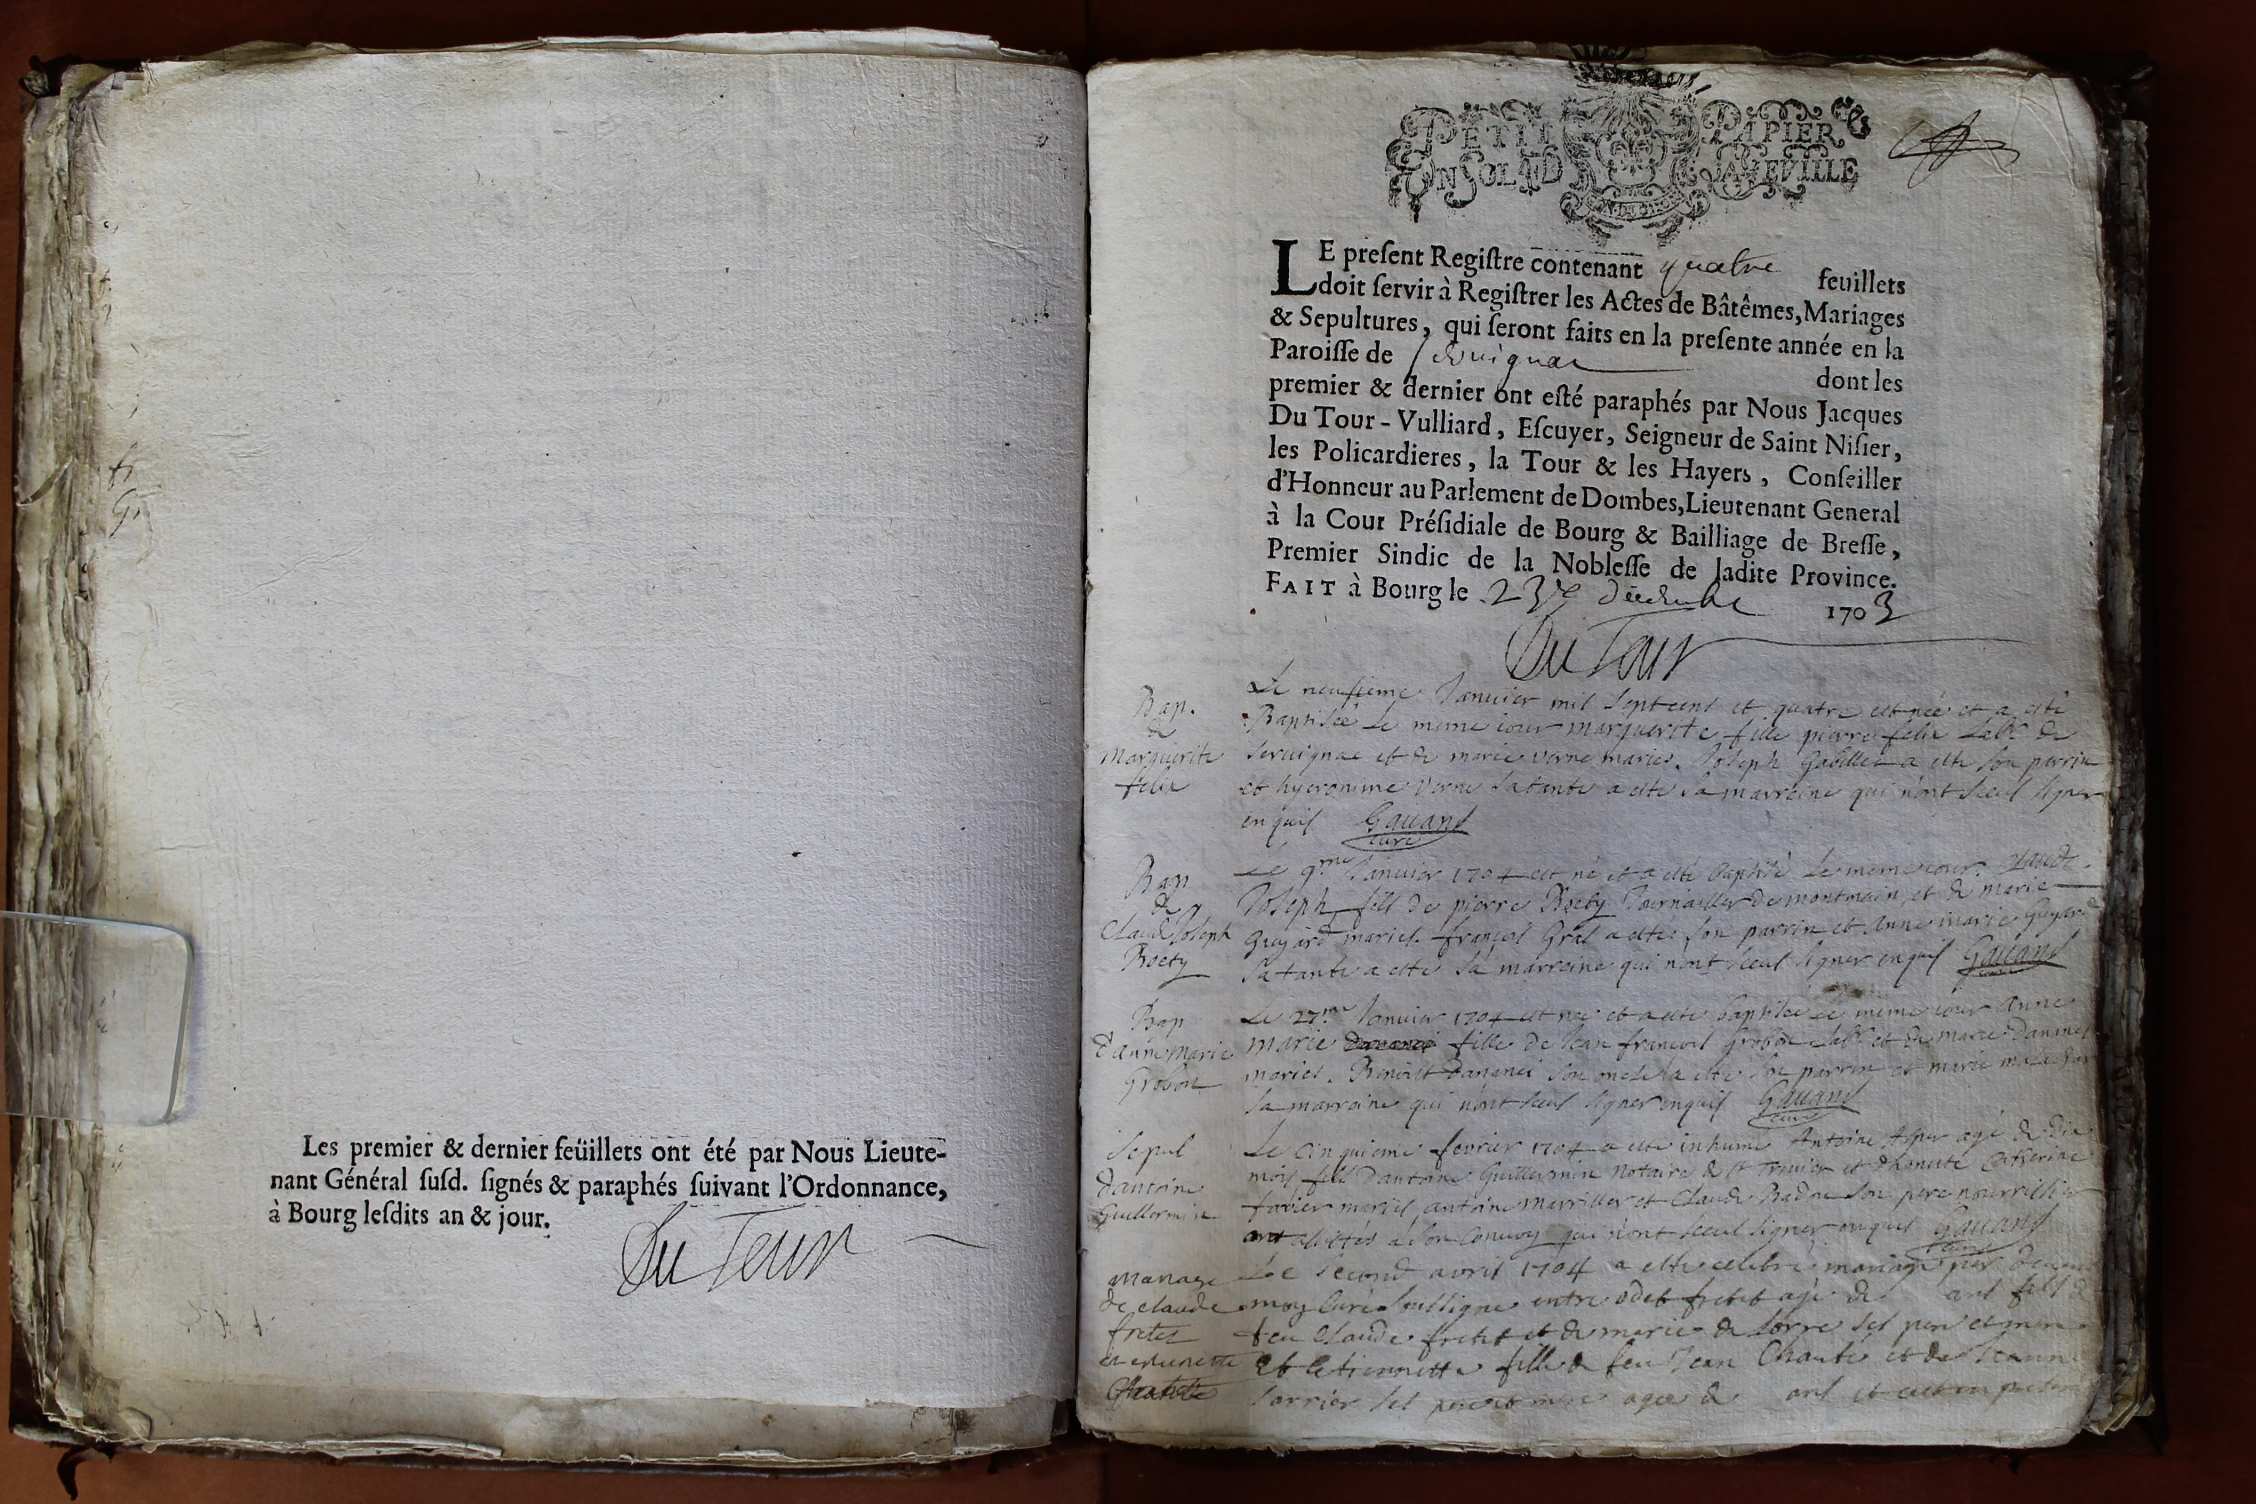 Les premier & dernier feüillets ont été par Nous Lieute-
nant Général susd. signés & paraphés suivant l'Ordonnance,
à Bourg lesdits an & jour.
Du Tour
PETIT PAPIER
UN SOL LA FEVILLE
LE present Registre contenant quatre feuillets
doit servir à Registrer les Actes de Bâtêmes, Mariages
& Sepultures, qui seront faits en la presente année en la
Paroisse de Servignat dont les
premier & dernier ont esté paraphés par Nous Jacques
Du Tour-Vulliard, Escuyer, Seigneur de Saint Nisier,
les Policardieres, la Tour & les Hayers, Conseiller
d'Honneur au Parlement de Dombes, Lieutenant General
à la Cour Présidiale de Bourg & Bailliage de Bresse,
Premier Sindic de la Noblesse de ladite Province.
FAIT à Bourg le 23e decembre 1703
Du Tour
Bap.
de
Marguerite
felix
Le neufieme Janvier mil sept cens et quatre est née et a esté
Baptisée le meme iour marguerite fille pierre felix labr de
servignac et de marie verne mariés. Joseph Gabillet a esté son parrin
et hyeronime verne sa tante a esté sa marreine qui n'ont sceu signer
enquis Gauand
curé
Bap
de
Claude Joseph
Roety
Le 9me Janvier 1704 est né et a esté baptisé le meme iour Claude
Joseph fils de pierre Roety Journailler de montmain et de marie
Guyard mariés. françois Gras a esté son parrin et anne marie Guyard
sa tante a esté sa marreine qui n'ont sceu signer enquis Gauand
Bap
d'anne marie
Grobon
Le 27me Janvier 1704 est née et a esté baptisée le meme iour anne
marie fille de Jean francois Grobon labr et de marie Dananes
mariés. Benoist Dananes son oncle a esté son parrin et marie
sa marreine qui n'ont sceu signer enquis Gauand
curé
Sepul
d'antoine
Guillermin
Le cinquieme fevrier 1704 a esté inhumé Antoine agé de dix
mois fils d'antoine Guillermin notaire de st Trivier et d'honeste Catherine
favier mariés antoine marviller et Claude Badou son pere nourrissier
assistés a son convoy qui n'ont sceu signer enquis Gauand
curé
Mariage
de claude
fretet
et etiennette
Le second avril 1704 a esté celebré mariage par devant
moy Curé soussigné entre odet fretet agé de ans fils de
feu Claude fretet et de marie de Lorre ses pere et mere
et Etiennette fille de feu Jean Chanti et de Jeanne
sarrier ses pere et mere agée de ans et